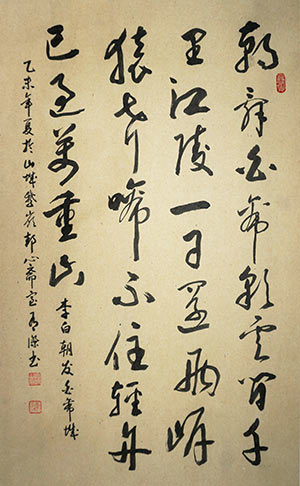 朝辞白帝彩云间千
里江陵一日還两岸
猿声啼不住輕舟
已過萬重山
李白朝发白帝城
乙未年夏於山城心斋书